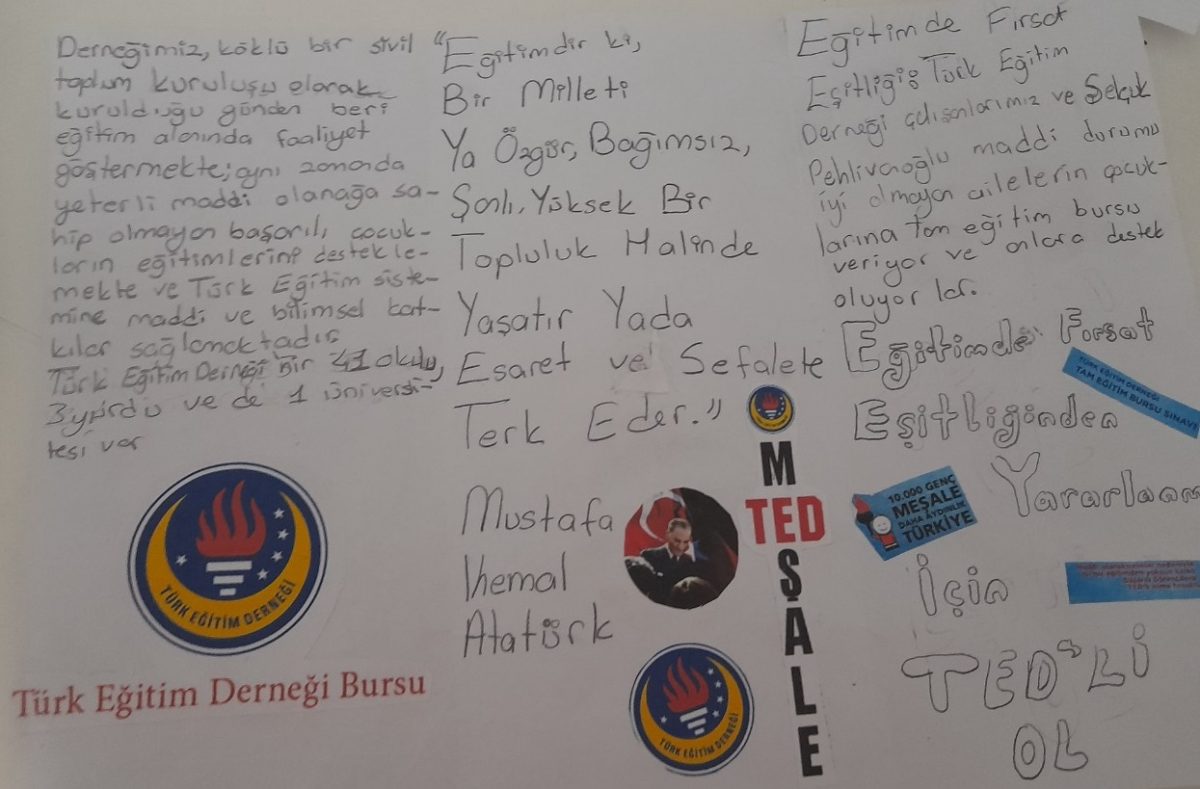 Derneğimiz, köklü bir sivil
toplum kuruluşu olarak
kurulduğu günden beri
eğitim alanında faaliyet
göstermekte; aynı zamanda
yeterli maddi olanağa sa-
hip olmayan başarılı çocuk-
ların eğitimlerine destekle-
mekte ve Türk Eğitim siste-
mine maddi ve bilimsel kat-
kılar sağlamaktadır
Türk Eğitim Derneği'nin 41 okulu,
3 yurdu ve de 1 üniversi-
tesi var
TÜRK EĞİTİM DERNEĞİ
Türk Eğitim Derneği Bursu
"Eğitimdir ki,
Bir Milleti
Ya Özgür, Bağımsız,
Şanlı, Yüksek Bir
Topluluk Halinde
Yaşatır Yada
Esaret ve Sefalete
Terk Eder."
Mustafa
Kemal
Atatürk
M
TED
Ş
A
L
E
TÜRK EĞİTİM DERNEĞİ
Eğitimde Fırsat
Eşitliği; Türk Eğitim
Derneği çalışanlarımız ve Selçuk
Pehlivanoğlu maddi durumu
iyi olmayan ailelerin çocuk-
larına tam eğitim bursu
veriyor ve onlara destek
oluyorlar.
Eğitimde Fırsat
Eşitliğinden
Yararlanm
İçin
TED'Lİ
OL
TÜRK EĞİTİM DERNEĞİ
TAM EĞİTİM BURSU SINAVI
10.000 GENÇ
MEŞALE
DAHA AYDINLIK
TÜRKİYE